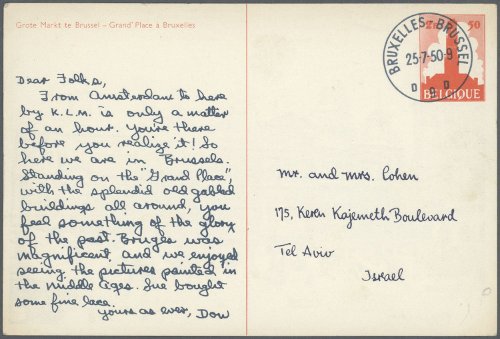 Grote Markt te Brussel – Grand'Place à Bruxelles
Dear Folks,
From Amsterdam to here
by K.L.M. is only a matter
of an hour. You're there
before you realize it! So
here we are in Brussels.
Standing on the "Grand Place",
with the splendid old gabled
buildings all around, you
feel something of the glory
of the past. Bruges was
magnificent and we enjoyed
seeing the pictures painted in
the Middle Ages. Sue bought
some fine lace.
Yours as ever, Dow
BRUXELLES-BRUSSEL
25-7-50-9
D D D
50
BELGIQUE
Mr. and Mrs. Cohen
175, Keren Kajemeth Boulevard
Tel Aviv
Israel